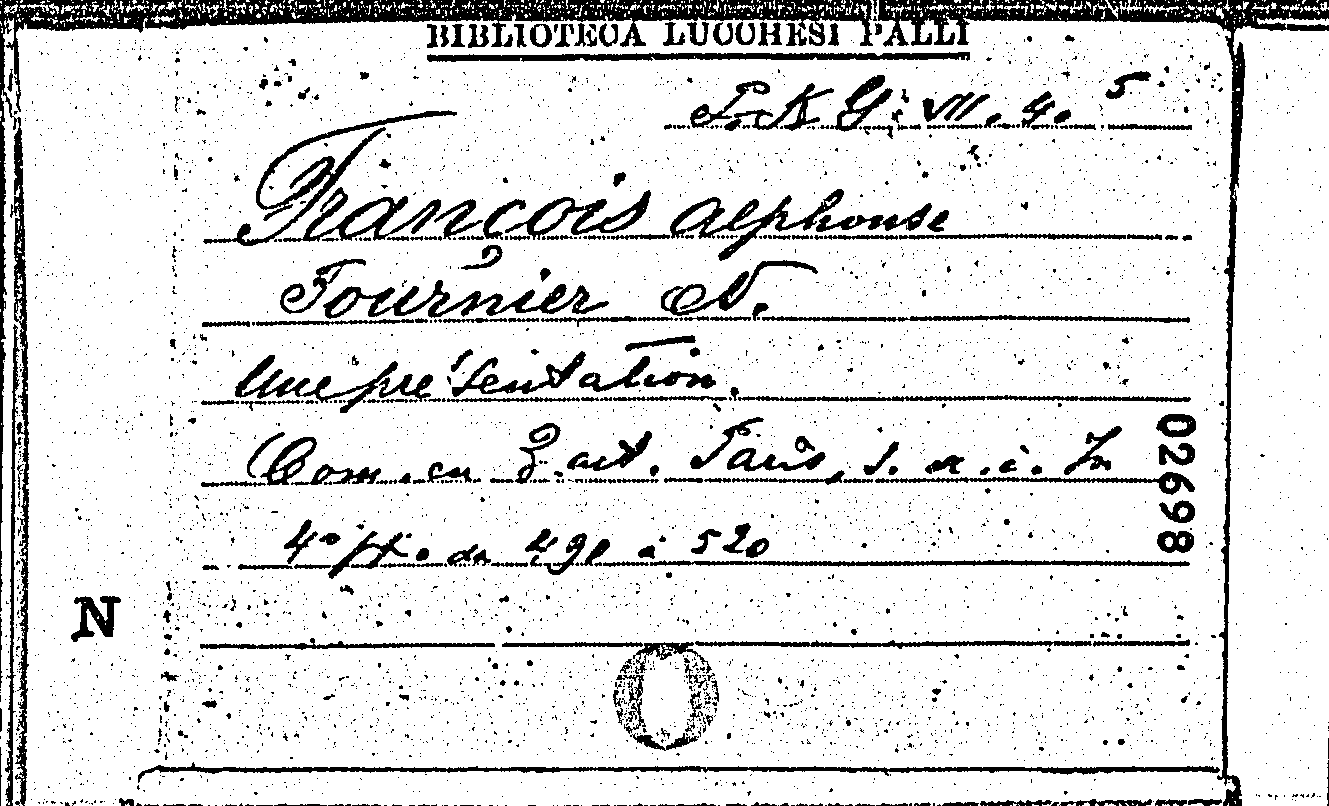 BIBLIOTECA LUCCHESI PALLI
L.K G: VII. 4. 5
François alphonse
Fournier N.
Une présentation.
Com. en 3 act. Paris, s. a. i. In
4º pp. da 490 a 520
02698
N